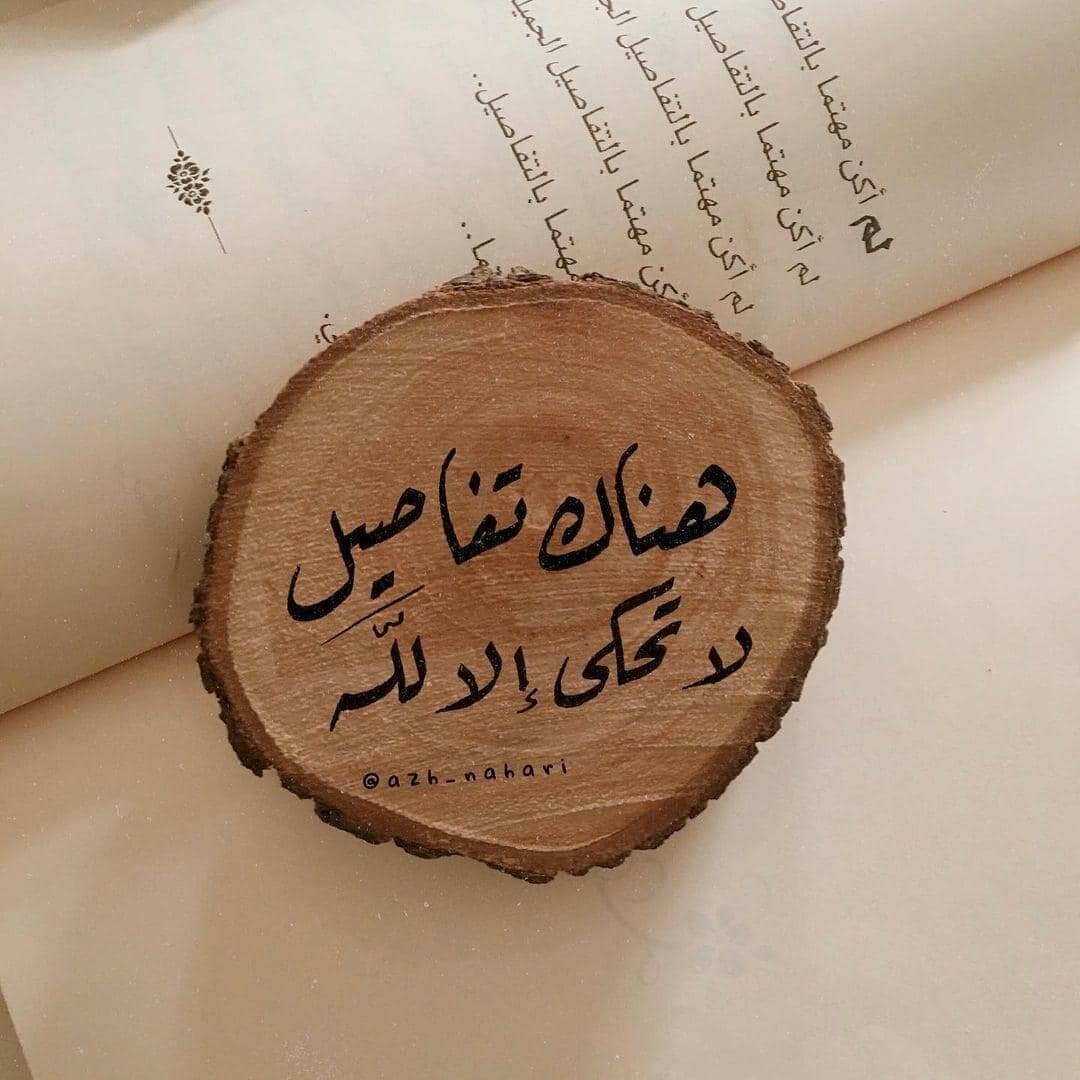 لم أكن مهتما بالتفاصيل
لم أكن مهتما بالتفاصيل
لم أكن مهتما بالتفاصيل
أكن مهتما بالتفاصيل
مهتما بالتفاصيل..
هناك تفاصيل
لا تحكى إلا للّه
@azh_nahari